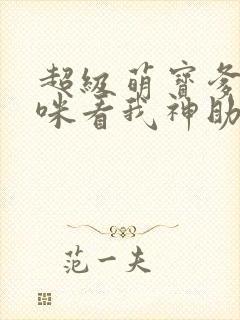 超级萌宝爹
咪看我神助
范一夫